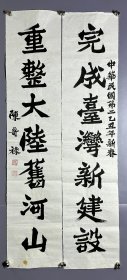 完成臺灣新建設
中華民國第二乙丑年新春
重整大陸舊河山